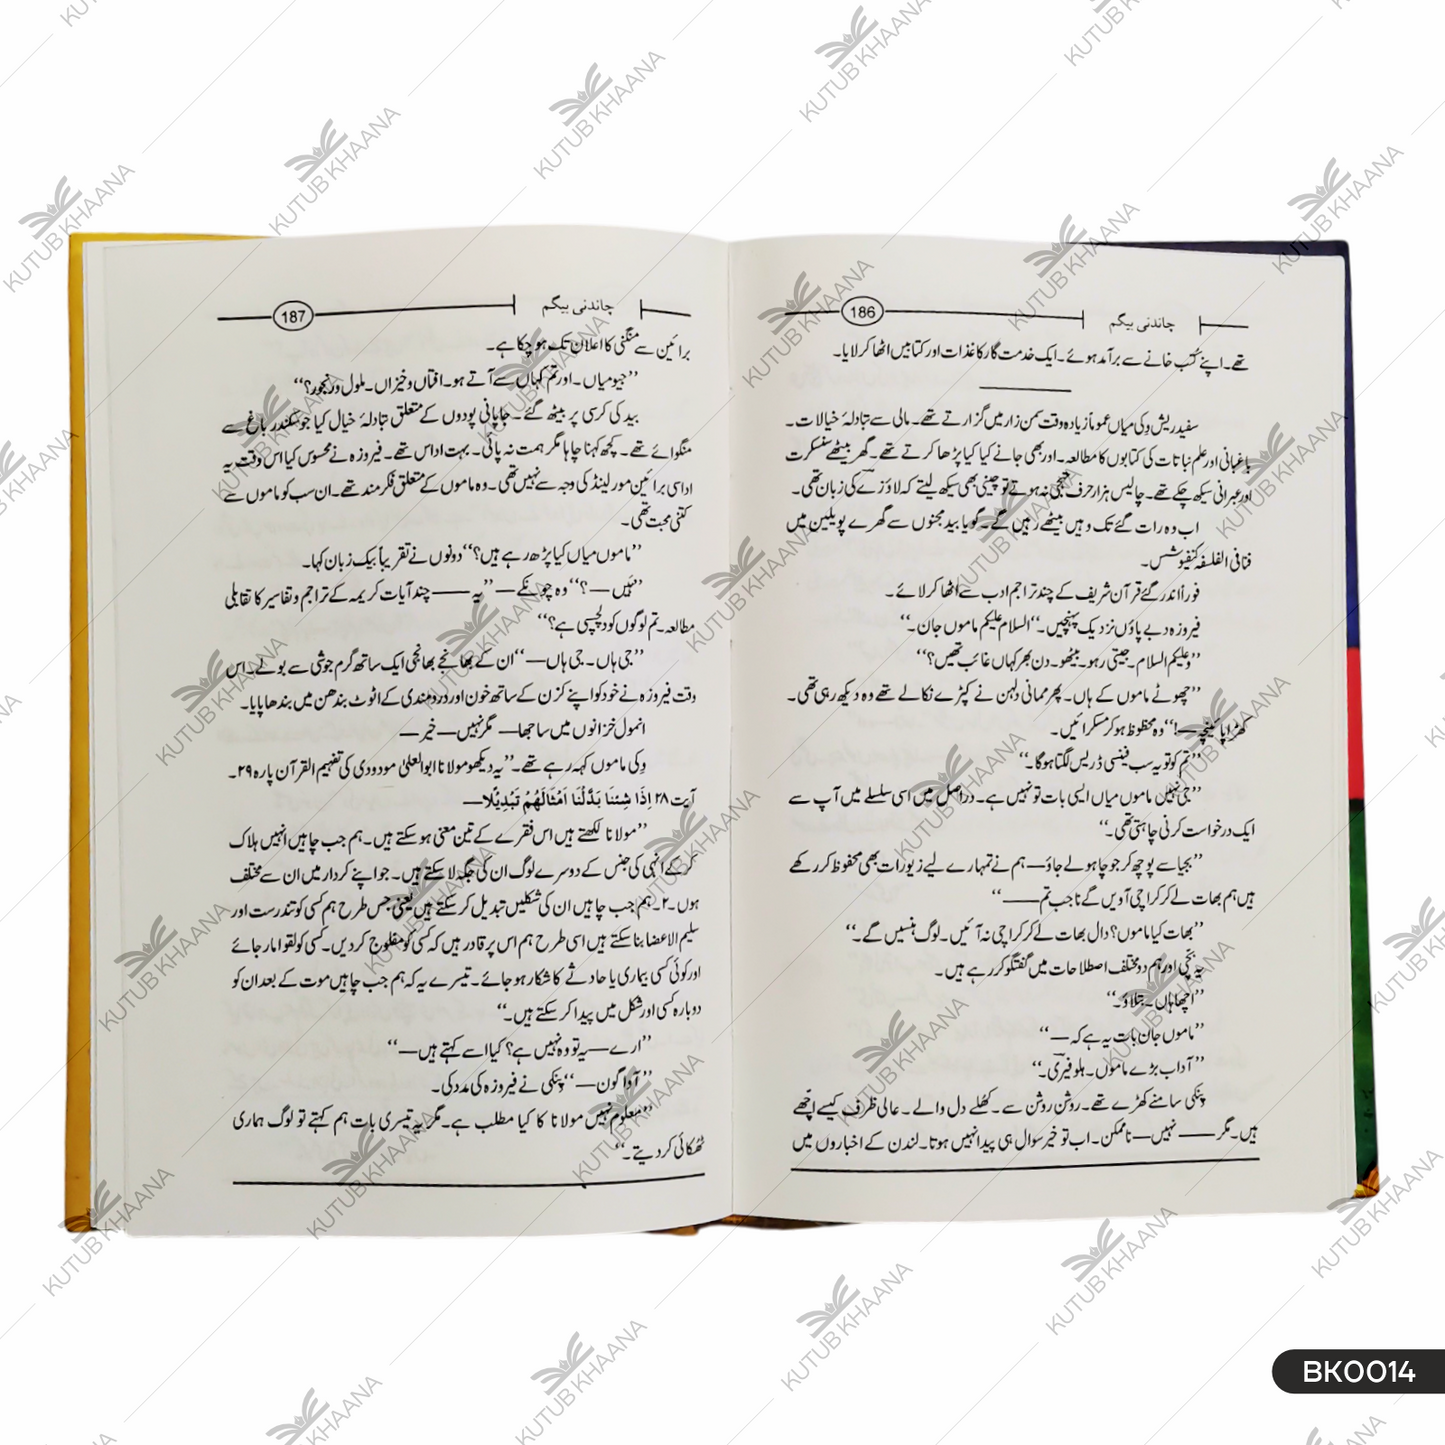 چاندنی بیگم
186
تھے۔ اپنے کتب خانے سے برآمد ہوئے۔ ایک خدمت گار کاغذات اور کتابیں اٹھا کر لایا۔
سفید ریش وِکی میاں عموماً زیادہ وقت سمن زار میں گزارتے تھے۔ مالی سے تبادلۂ خیالات۔
باغبانی اور علم نباتات کی کتابوں کا مطالعہ۔ اور بھی جانے کیا کیا پڑھا کرتے تھے۔ گھر بیٹھے سنسکرت
اور عبرانی سیکھ چکے تھے۔ چالیس ہزار حرف تہجی نہ ہوتے تو چینی بھی سیکھ لیتے کہ لاؤزے کی زبان تھی۔
اب وہ رات گئے تک وہیں بیٹھے رہیں گے۔ گویا بید مجنوں سے گھرے پویلین میں
فنا فی الفلسفہ کنفیوشس۔
فوراً اندر گئے قرآن شریف کے چند تراجم ادب سے اُٹھا کر لائے۔
فیروزہ دبے پاؤں نزدیک پہنچیں۔ ‘‘السلام علیکم ماموں جان۔‘‘
’’وعلیکم السلام۔ جیتی رہو۔ بیٹھو۔ دن بھر کہاں غائب تھیں؟‘‘
’’چھوٹے ماموں کے ہاں۔ پھر ممانی دلہن نے کپڑے نکالے تھے وہ دیکھ رہی تھی۔
کھڑا پائینچہ—!‘‘ وہ محظوظ ہو کر مسکرائیں۔
’’تم کو تو یہ سب فینسی ڈریس لگتا ہوگا۔‘‘
’’جی نہیں ماموں میاں ایسی بات تو نہیں ہے۔ دراصل میں اسی سلسلے میں آپ سے
ایک درخواست کرنی چاہتی تھی۔‘‘
’’بجیا سے پوچھ کر جو چاہو لے جاؤ— ہم نے تمہارے لیے زیورات بھی محفوظ کر رکھے
ہیں ہم بھات لے کر کراچی آویں گے نا جب تم——‘‘
’’بھات کیا ماموں؟ دال بھات لے کر کراچی نہ آئیں۔ لوگ ہنسیں گے۔‘‘
یہ بچی اور ہم دو مختلف اصطلاحات میں گفتگو کر رہے ہیں۔
’’اچھا ہاں۔ بتلاؤ۔‘‘
’’ماموں جان بات یہ ہے کہ—‘‘
’’آداب بڑے ماموں۔ ہلو فیری۔‘‘
پنکی سامنے کھڑے تھے۔ روشن روشن سے۔ کھلے دل والے۔ عالی ظرف کیسے اچھے
ہیں۔ مگر—— نہیں— ناممکن۔ اب تو خیر سوال ہی پیدا نہیں ہوتا۔ لندن کے اخباروں میں
چاندنی بیگم
187
برائین سے منگنی کا اعلان تک ہو چکا ہے۔
’’جیو میاں۔ اور تم کہاں سے آتے ہو۔ افتاں و خیزاں۔ ملول و رنجور؟‘‘
بید کی کرسی پر بیٹھ گئے۔ جاپانی پودوں کے متعلق تبادلۂ خیال کیا جو سکندر باغ سے
منگوائے تھے۔ کچھ کہنا چاہا مگر ہمت نہ پائی۔ بہت اداس تھے۔ فیروزہ نے محسوس کیا اس وقت یہ
اداسی برائین مورلینڈ کی وجہ سے نہیں تھی۔ وہ ماموں کے متعلق فکر مند تھے۔ ان سب کو ماموں سے
کتنی محبت تھی۔
’’ماموں میاں کیا پڑھ رہے ہیں؟‘‘ دونوں نے تقریباً بیک زبان کہا۔
’’ہَیں—؟‘‘ وہ چونکے— ’’یہ—— چند آیات کریمہ کے تراجم و تفاسیر کا تقابلی
مطالعہ۔ تم لوگوں کو دلچسپی ہے؟‘‘
’’جی ہاں۔ جی ہاں—‘‘ ان کے بھانجے بھانجی ایک ساتھ گرم جوشی سے بولے۔ اس
وقت فیروزہ نے خود کو اپنے کزن کے ساتھ خون اور دردمندی کے اٹوٹ بندھن میں بندھا پایا۔
انمول خزانوں میں ساجھا— مگر نہیں— خیر—
وِکی ماموں کہہ رہے تھے۔ ’’یہ دیکھو مولانا ابوالعلیٰ مودودی کی تفہیم القرآن پارہ ۲۹۔
آیت ۲۸ اِذَا شِئنَا بَدَّلْنَا اَمْثَالَهُمْ تَبْدِيْلًا—
’’مولانا لکھتے ہیں اس فقرے کے تین معنی ہو سکتے ہیں۔ ہم جب چاہیں انہیں ہلاک
کر کے انہی کی جنس کے دوسرے لوگ ان کی جگہ لا سکتے ہیں۔ جو اپنے کردار میں ان سے مختلف
ہوں۔ ۲۔ ہم جب چاہیں ان کی شکلیں تبدیل کر سکتے ہیں یعنی جس طرح ہم کسی کو تندرست اور
سلیم الاعضا بنا سکتے ہیں اسی طرح ہم اس پر قادر ہیں کہ کسی کو مفلوج کر دیں۔ کسی کو لقوا مار جائے
اور کوئی کسی بیماری یا حادثے کا شکار ہو جائے۔ تیسرے یہ کہ ہم جب چاہیں موت کے بعد ان کو
دوبارہ کسی اور شکل میں پیدا کر سکتے ہیں۔‘‘
’’ارے— یہ تو وہ نہیں ہے؟ کیا اسے کہتے ہیں—‘‘
’’آواگون—‘‘ پنکی نے فیروزہ کی مدد کی۔
’’معلوم نہیں مولانا کا کیا مطلب ہے۔ مگر یہ تیسری بات ہم کہتے تو لوگ ہماری
ٹھکائی کر دیتے۔‘‘
KUTUB KHAANA
BK0014